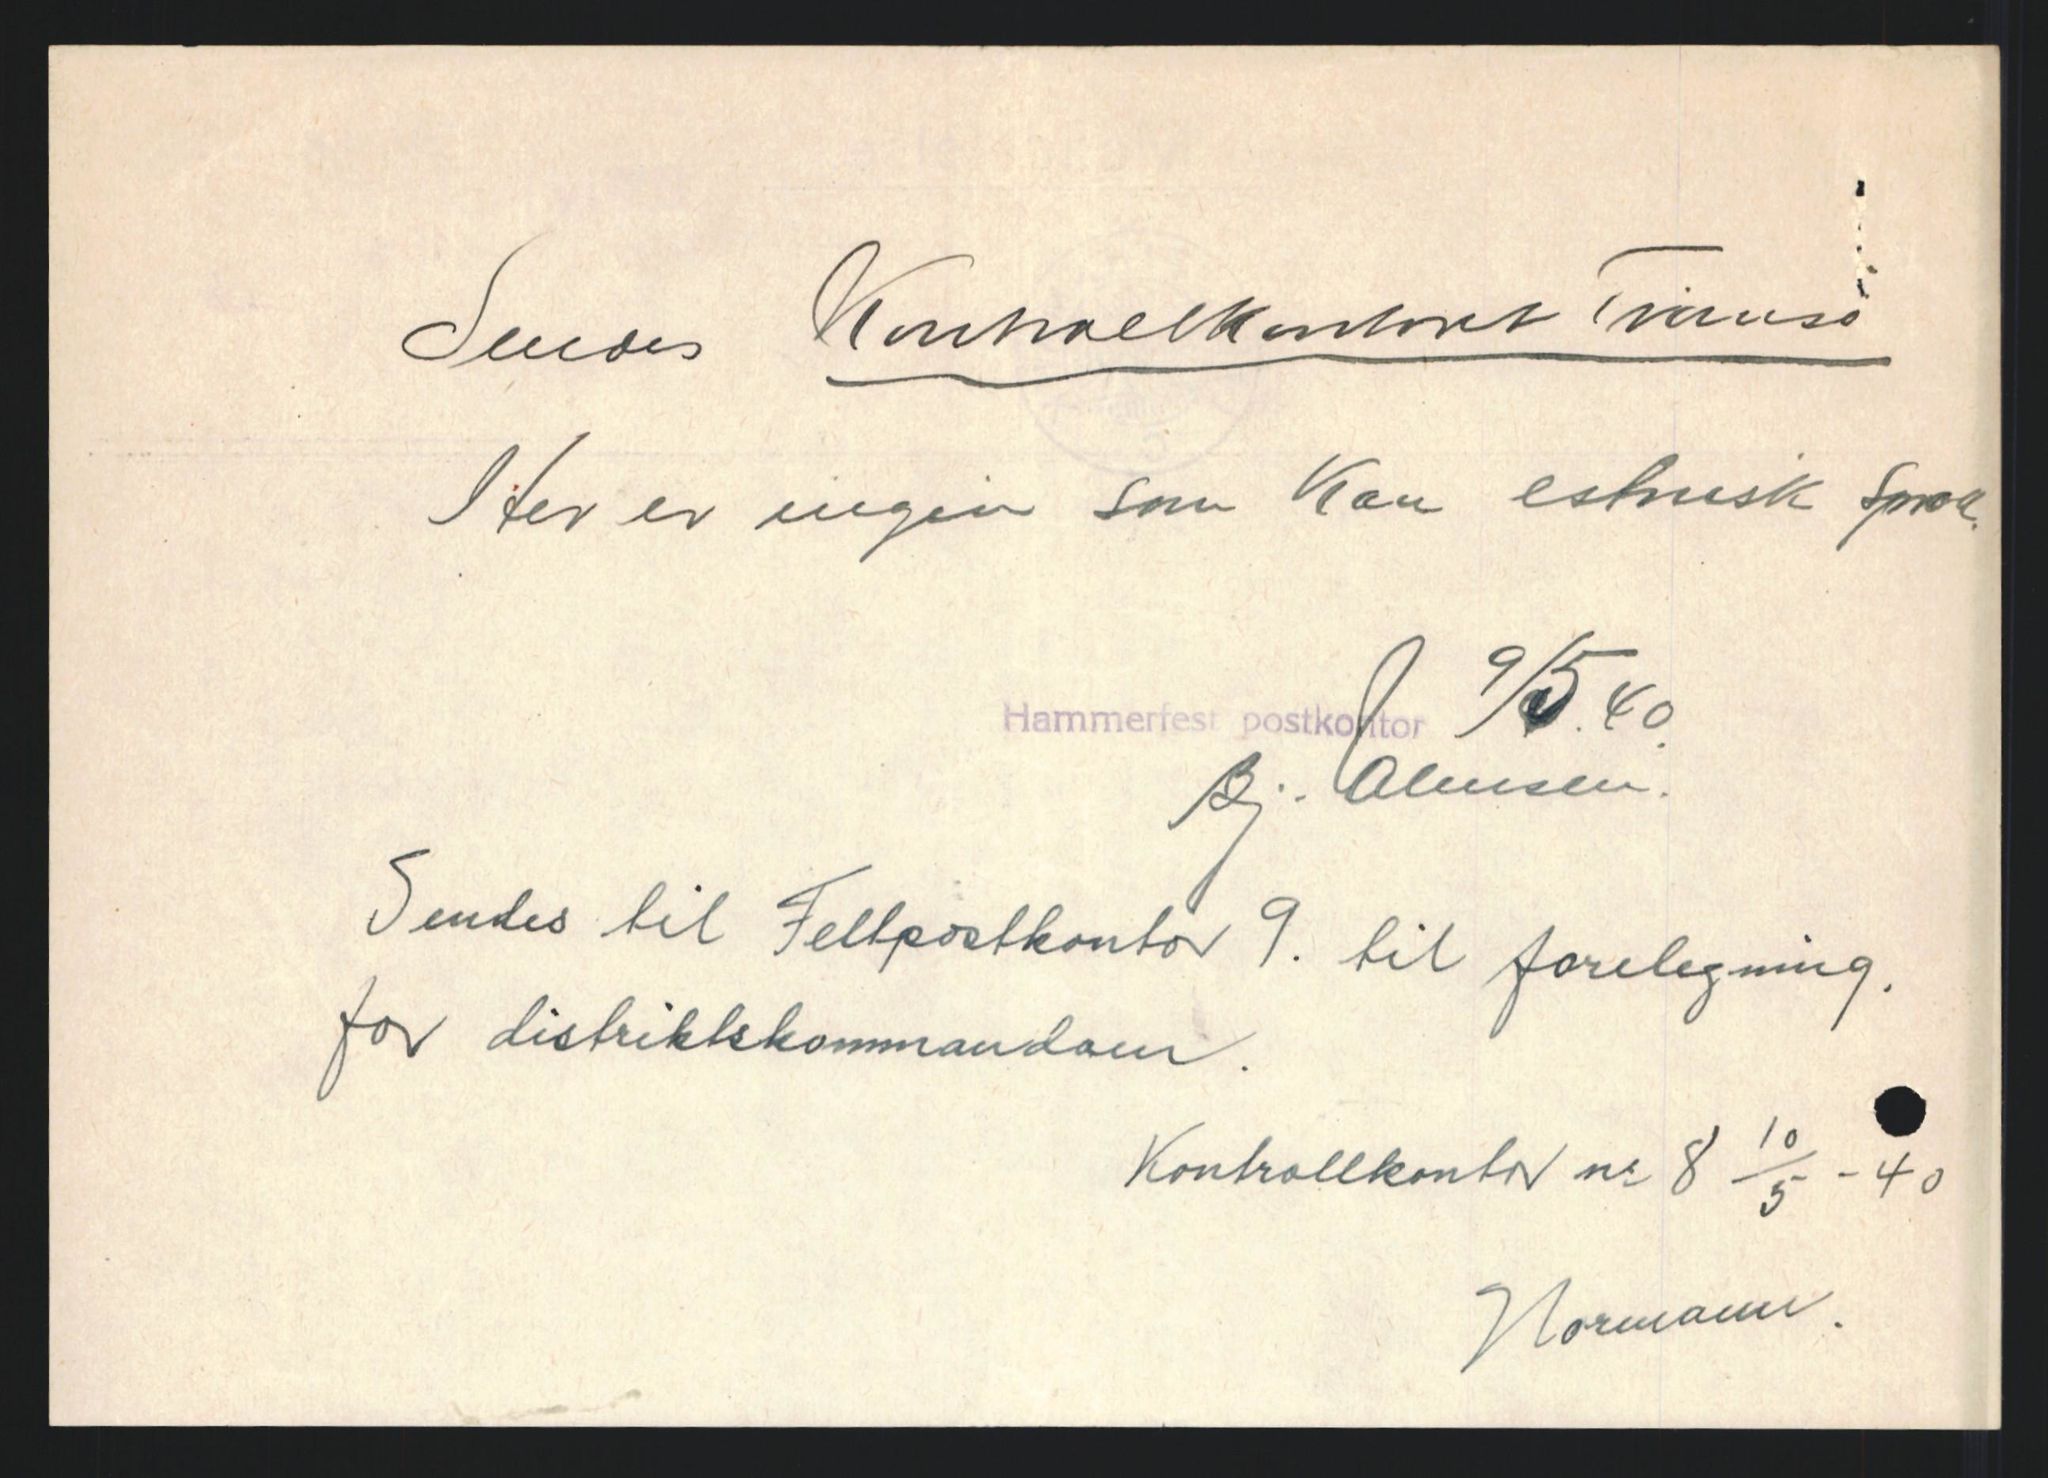 Sendes Kontrollkontoret Tromsö
Her er ingen som kan estnisk sprok.
9/5.40.
Hammerfest postkontor
Bj.
Sendes til Feltpostkontor 9. til forelegning.
for distriktskommandoen.
Kontrollkontor nr 8 10/5 - 40
Normann.